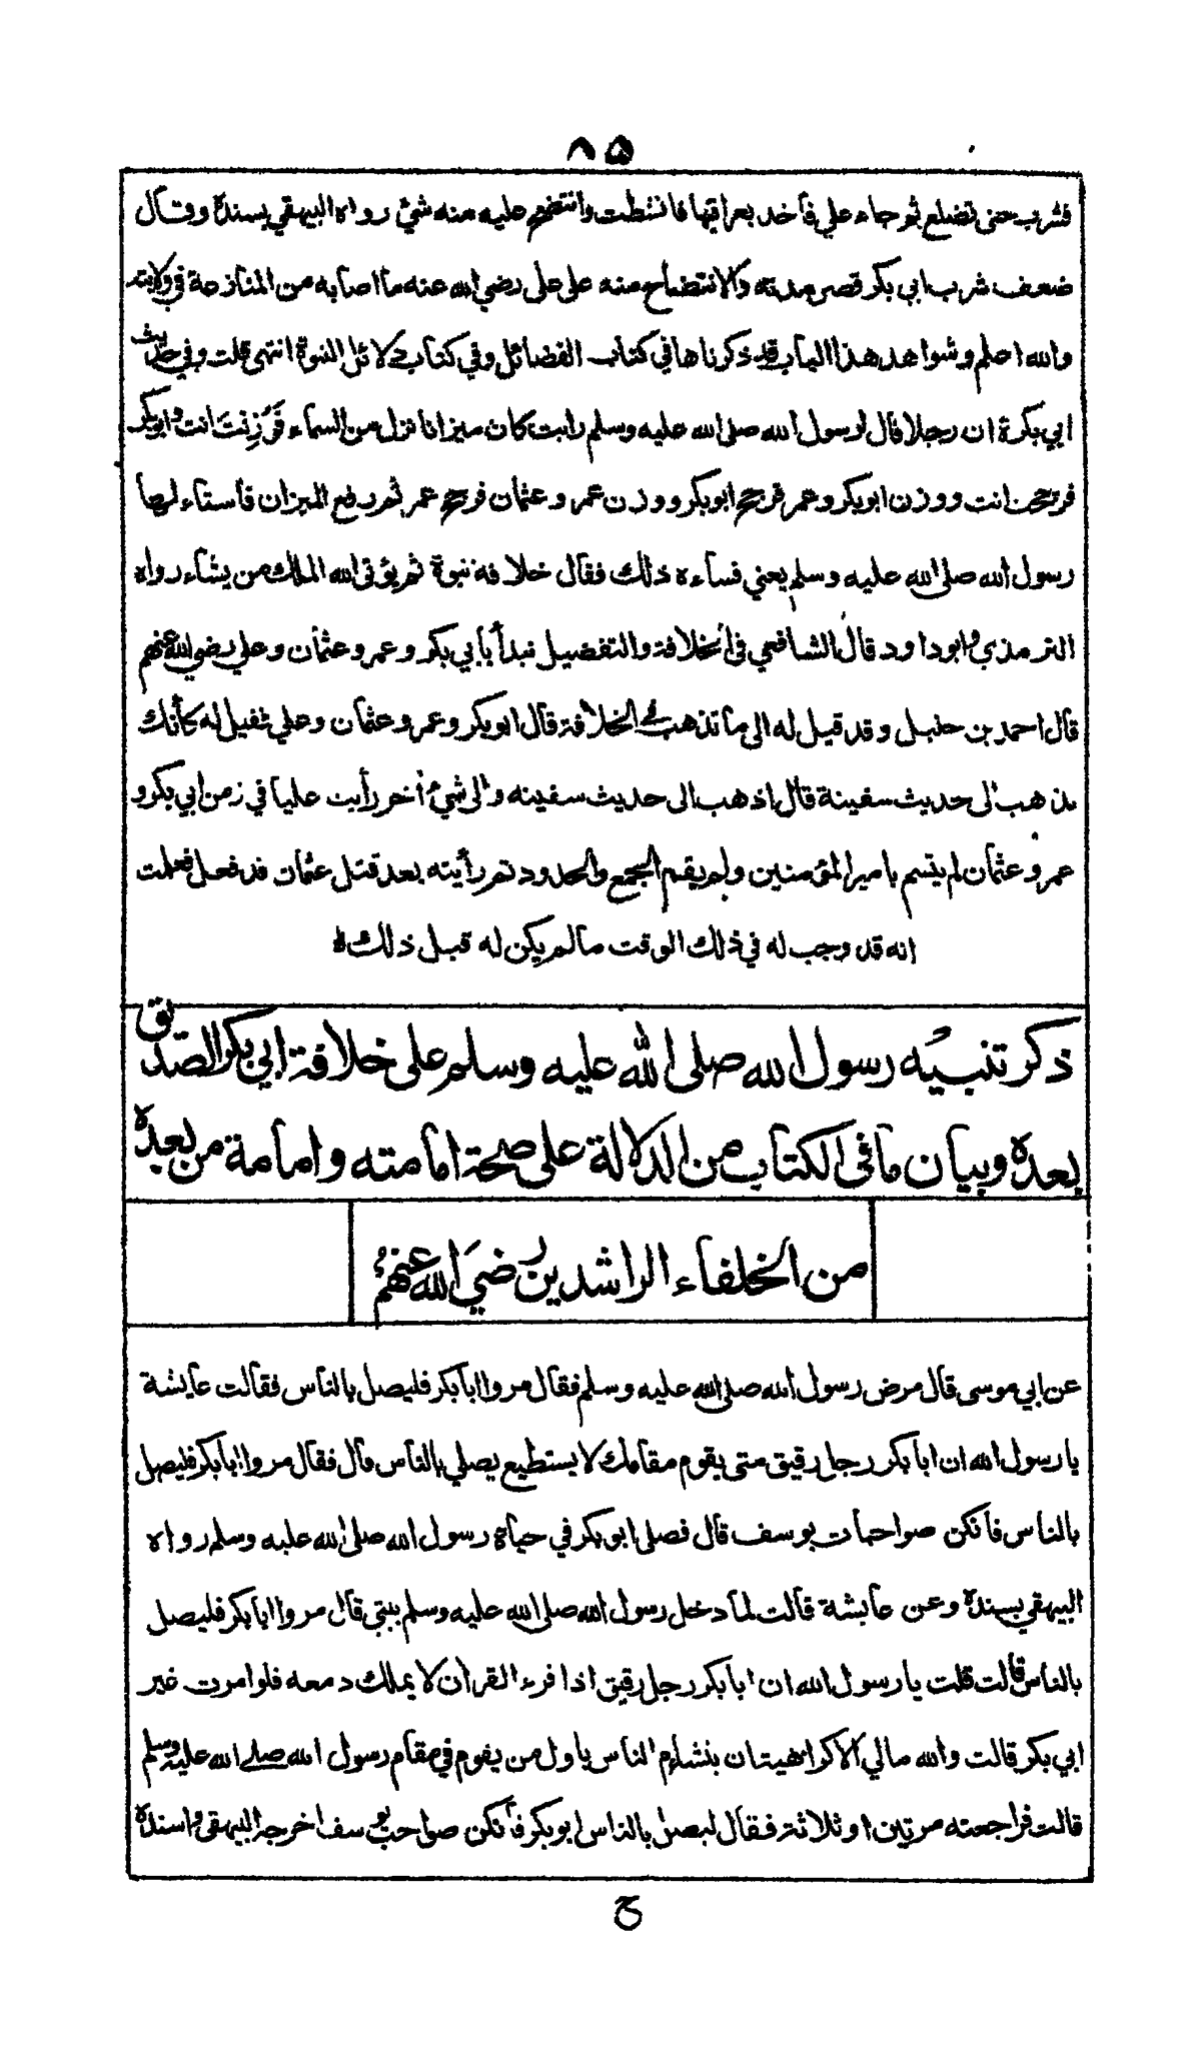 ٨٥
فشرب حتى تضلع ثم جاء علي فأخذ بعراقيها فانتشطت وانتضح عليه منه شئ رواه البيهقي بسنده وقال
ضعف شرب ابي بكر قصر مدته والانتضاح منه على علي رضي الله عنه ما اصابه من المنازعة في ولايته
والله اعلم وشواهد هذا الباب قد ذكرناها في كتاب الفضائل وفي كتاب دلائل النبوة انتهى قلت وفي حديث
ابي بكرة ان رجلا قال لرسول الله صلى الله عليه وسلم رايت كان ميزانا نزل من السماء فَوُزِنتَ انت وابوبكر
فرجحت انت ووزن ابوبكر وعمر فرجح ابوبكر ووزن عمر وعثمان فرجح عمر ثم رفع الميزان فاستاء لها
رسول الله صلى الله عليه وسلم يعني فساءه ذلك فقال خلافة نبوة ثم يؤتى الله الملك من يشاء رواه
الترمذي وابوداود قال الشافعي في الخلافة والتفضيل نبدأ بأبي بكر وعمر وعثمان وعلي رضي الله عنهم
قال احمد بن حنبل وقد قيل له الى ما تذهب في الخلافة قال ابوبكر وعمر وعثمان وعلي فقيل له كأنك
تذهب الى حديث سفينة قال اذهب الى حديث سفينه والى شئ أخر رأيت عليا في زمن ابي بكر و
عمر وعثمان لم يتسم بامير المؤمنين ولم يقم الجمع والحدود ثم رأيته بعد قتل عثمان قد فعل فعلمت
انه قد وجب له في ذلك الوقت مالم يكن له قبل ذلك
ذكر تنبيه رسول الله صلى الله عليه وسلم على خلافة ابي بكر الصديق
بعده وبيان ما في الكتاب من الدلالة على صحة امامته وامامة من بعده
من الخلفاء الراشدين رضي الله عنهم
عن ابي موسى قال مرض رسول الله صلى الله عليه وسلم فقال مروا ابابكر فليصل بالناس فقالت عايشة
يا رسول الله ان ابا بكر رجل رقيق متى يقوم مقامك لا يستطيع يصلي بالناس قال فقال مروا ابابكر فليصل
بالناس فأنكن صواحبات يوسف قال فصلى ابوبكر في حياة رسول الله صلى الله عليه وسلم رواه
البيهقي بسنده وعن عايشة قالت لما دخل رسول الله صلى الله عليه وسلم بيتي قال مروا ابابكر فليصل
بالناس قالت قلت يا رسول الله ان ابا بكر رجل رقيق اذا قرء القرآن لا يملك دمعه فلو امرت غير
ابي بكر قالت والله مالي الا كراهيتان يتشاءم الناس باول من يقوم في مقام رسول الله صلى الله عليه وسلم
قالت فراجعته مرتين او ثلاثة فقال ليصل بالناس ابوبكر فأنكن صواحب يوسف اخرجه البيهقي واسنده
ح